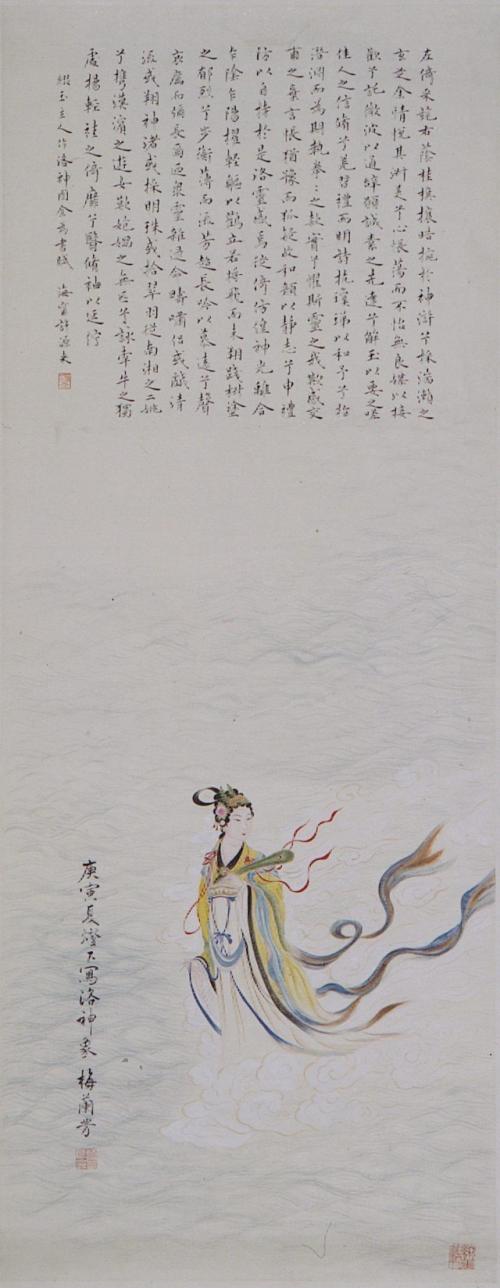 左倚采旄右蔭桂旗攘皓腕於神滸兮採湍瀨之
玄芝余情悅其淑美兮心振蕩而不怡無良媒以接
歡兮託微波以通辭願誠素之先達兮解玉以要之嗟
佳人之信脩兮羌習禮而明詩抗瓊珶以和予兮指
潛淵而為期執拳〻之款實兮懼斯靈之我欺感交
甫之棄言悵猶豫而狐疑收和顏以靜志兮申禮
防以自持於是洛靈感焉徙倚彷徨神光離合
乍陰乍陽擢輕軀以鶴立若將飛而未翔踐椒塗
之郁烈兮步蘅薄而流芳超長吟以慕遠兮聲
哀厲而彌長爾迺眾靈雜遝命疇嘯侶或戲清
流或翔神渚或採明珠或拾翠羽從南湘之二姚
兮攜漢濱之遊女歎媧之無匹兮詠牽牛之獨
處揚輕袿之猗靡兮翳脩袖以延佇
綴玉主人作洛神圖余為書賦 海寧許源來
庚寅夏燈下寫洛神象 梅蘭芳